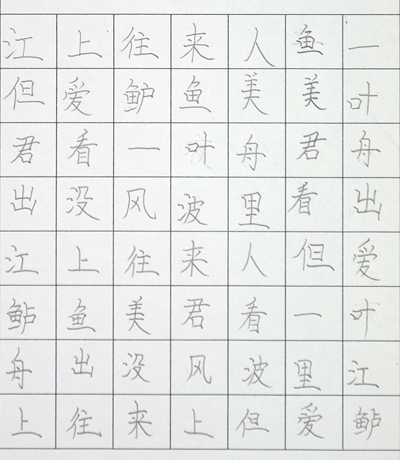 江上往来人鱼一
但爱鲈鱼美美叶
君看一叶舟君舟
出没风波里看出
江上往来人但爱
鲈鱼美君看一叶
舟出没风波里江
上往来上但爱鲈